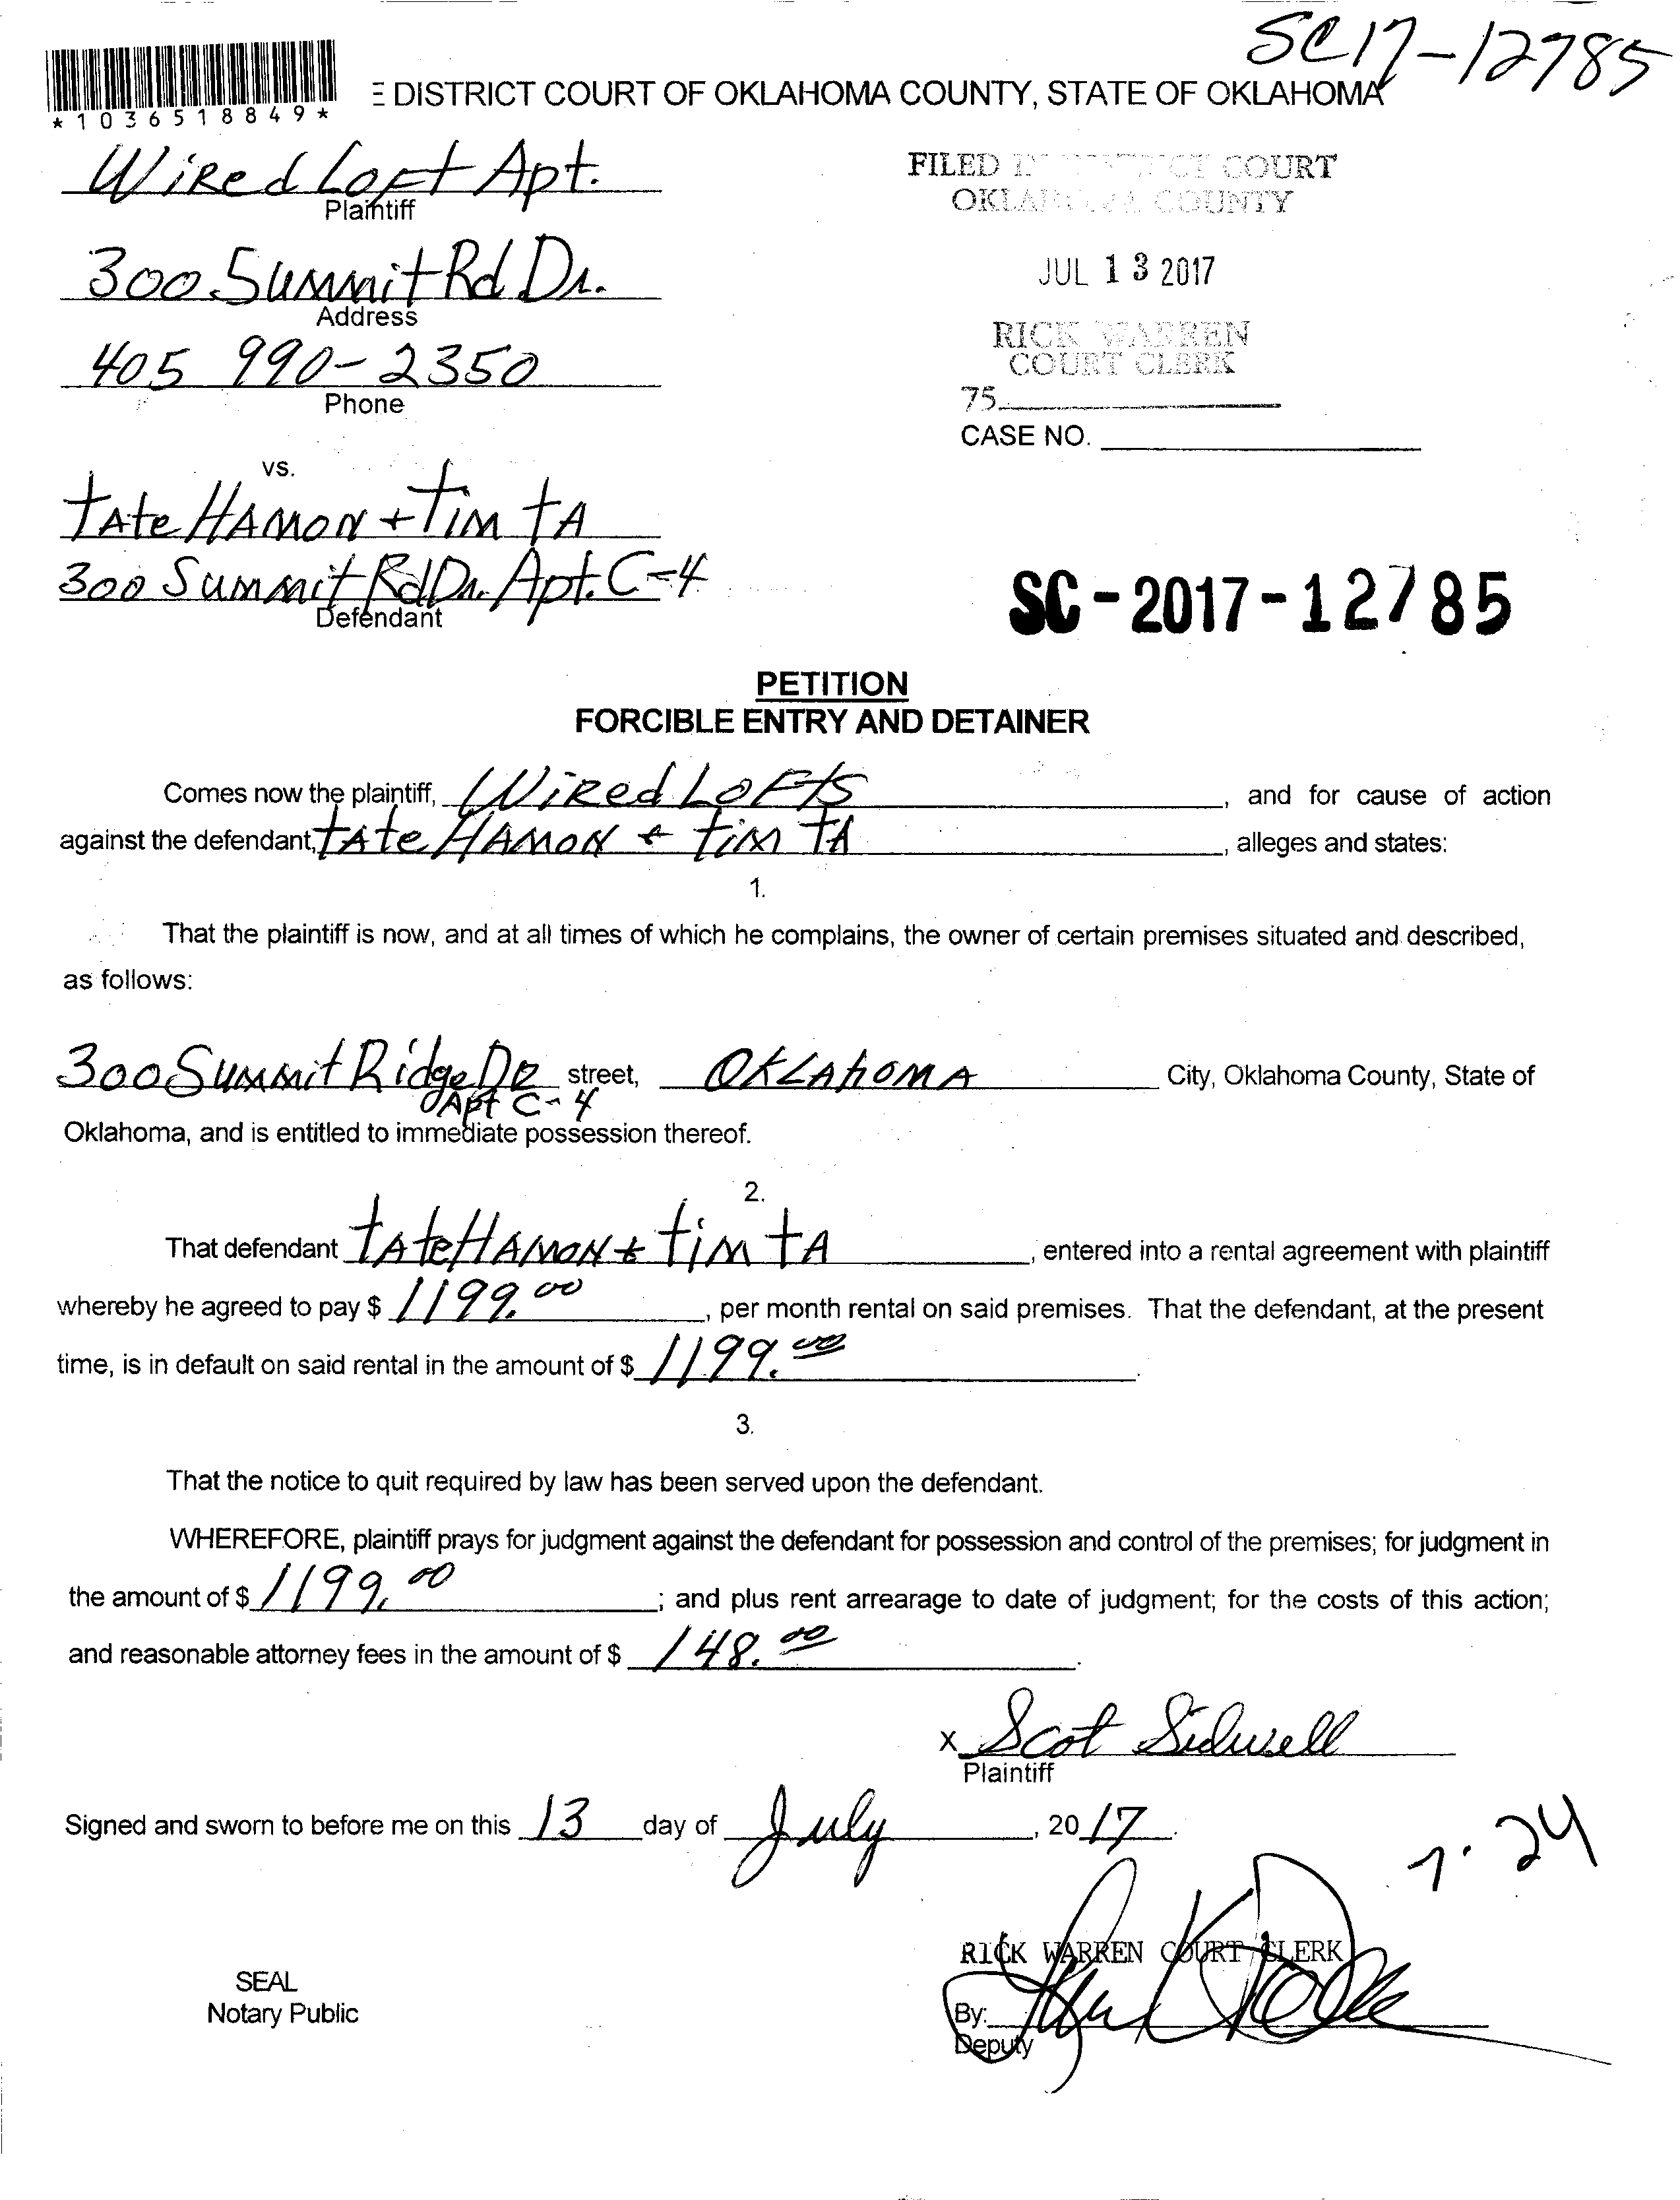 SC17-12785
*1036518849*
E DISTRICT COURT OF OKLAHOMA COUNTY, STATE OF OKLAHOMA
Wired Loft Apt.
Plaintiff
FILED COURT
OKLAHOMA COUNTY
300 Summit Rd Dr.
Address
JUL 13 2017
405 990-2350
Phone
RICK WARREN
COURT CLERK
75
CASE NO.
vs.
tAte HAMON + Tim tA
300 Summit Rd Dr. Apt. C-4
Defendant
SC-2017-12785
PETITION
FORCIBLE ENTRY AND DETAINER
Comes now the plaintiff, Wired Lofts, and for cause of action
against the defendant, tAte HAMON + tim TA, alleges and states:
1.
That the plaintiff is now, and at all times of which he complains, the owner of certain premises situated and described,
as follows:
300 Summit Ridge DR street, OKLAhOMA City, Oklahoma County, State of
Apt C-4
Oklahoma, and is entitled to immediate possession thereof.
2.
That defendant tAte HAMON + tim tA, entered into a rental agreement with plaintiff
whereby he agreed to pay $ 1199.00, per month rental on said premises. That the defendant, at the present
time, is in default on said rental in the amount of $ 1199.00.
3.
That the notice to quit required by law has been served upon the defendant.
WHEREFORE, plaintiff prays for judgment against the defendant for possession and control of the premises; for judgment in
the amount of $ 1199.00; and plus rent arrearage to date of judgment; for the costs of this action;
and reasonable attorney fees in the amount of $ 148.00.
x Scot Sidwell
Plaintiff
Signed and sworn to before me on this 13 day of July, 2017.
7.24
RICK WARREN COURT CLERK
SEAL
Notary Public
By:
Deputy